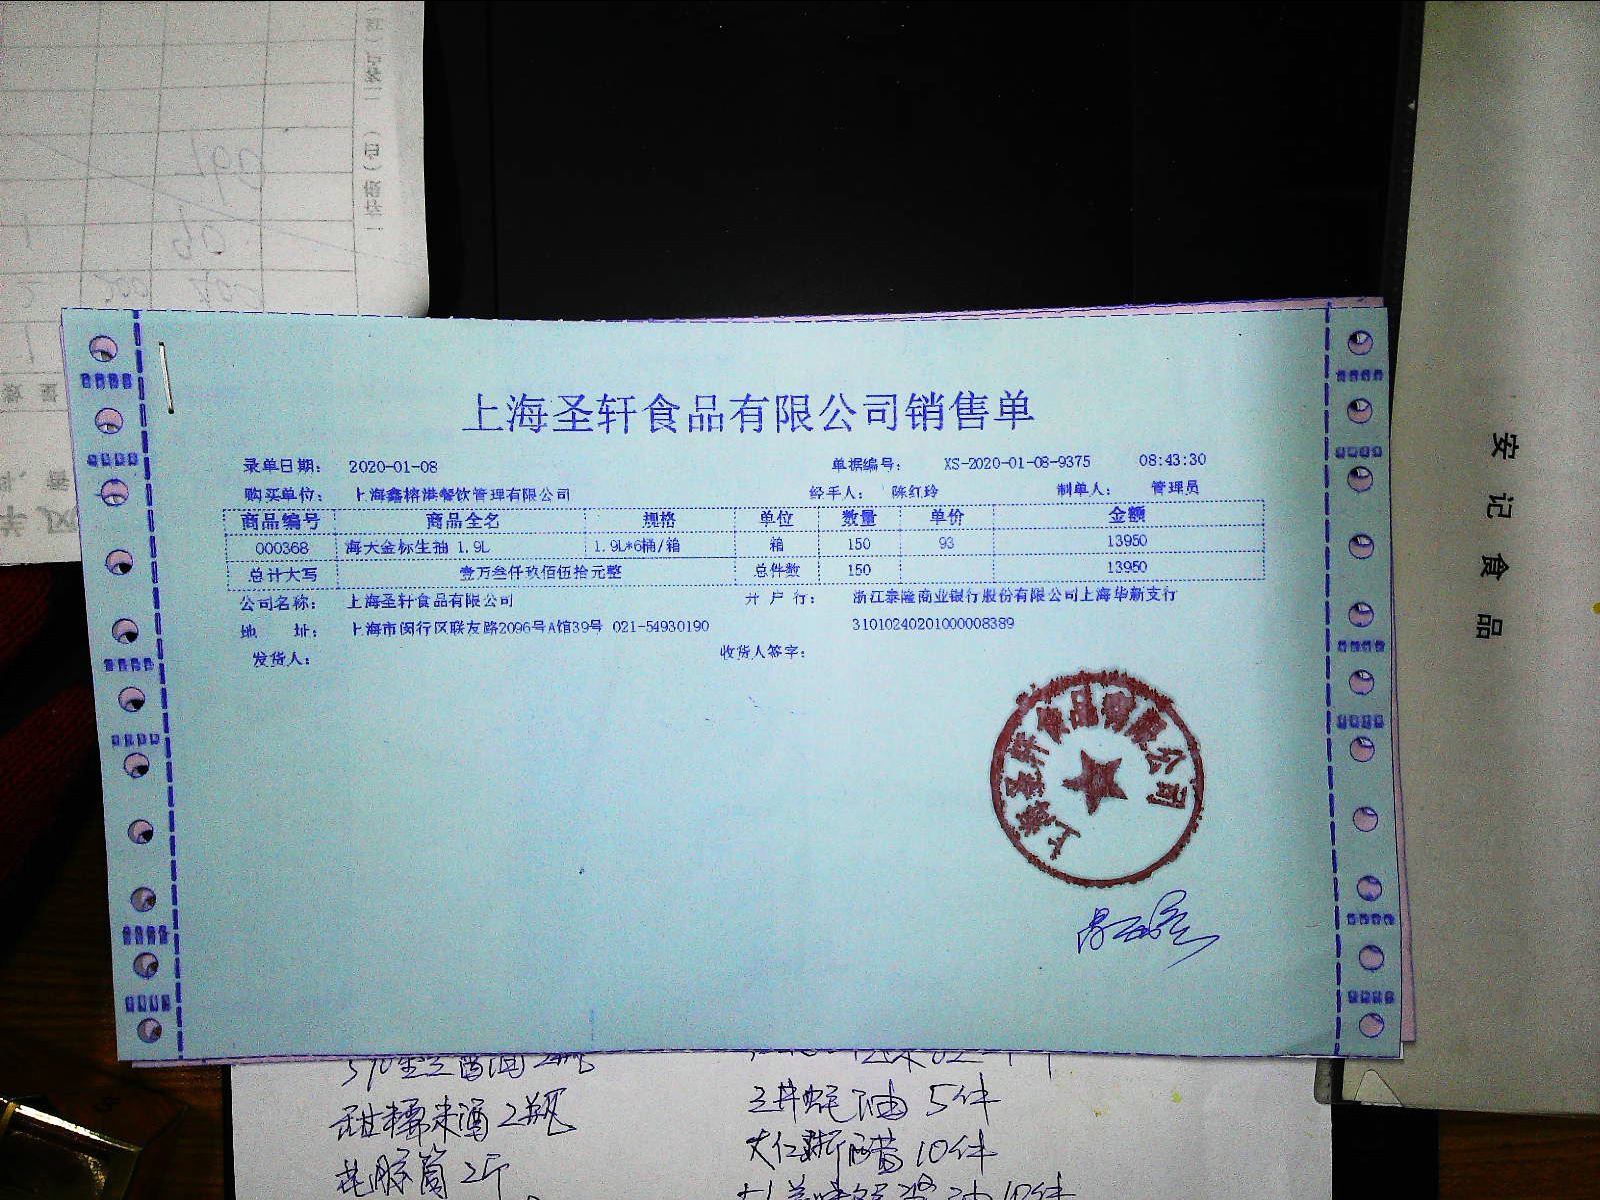 上海圣轩食品有限公司销售单
录单日期： 2020-01-08 单据编号： XS-2020-01-08-9375 08:43:30
购买单位： 上海鑫榕港餐饮管理有限公司 经手人： 陈红玲 制单人： 管理员
商品编号 商品全名 规格 单位 数量 单价 金额
000368 海大金标生抽 1.9L 1.9L*6桶/箱 箱 150 93 13950
总计大写 壹万叁仟玖佰伍拾元整 总件数 150 13950
公司名称： 上海圣轩食品有限公司 开 户 行： 浙江泰隆商业银行股份有限公司上海华新支行
地 址： 上海市闵行区联友路2096号A馆39号 021-54930190 31010240201000008389
发货人： 收货人签字：
上海圣轩食品有限公司
安记食品
甜糯米酒 2瓶
2斤
三井蚝油 5件
大仁 醋 10件
10件